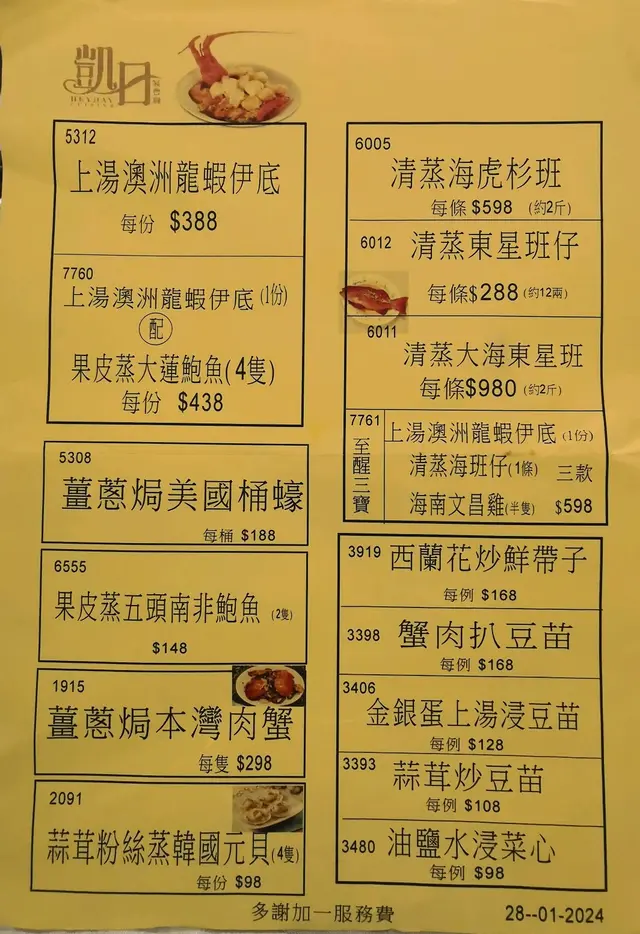 凱日
5312
上湯澳洲龍蝦伊底
每份 $388
7760
上湯澳洲龍蝦伊底(1份)
配
果皮蒸大蓮鮑魚(4隻)
每份 $438
5308
薑蔥焗美國桶蠔
每桶 $188
6555
果皮蒸五頭南非鮑魚(2隻)
$148
1915
薑蔥焗本灣肉蟹
每隻 $298
2091
蒜茸粉絲蒸韓國元貝(4隻)
每份 $98
6005
清蒸海虎杉班
每條 $598 (約2斤)
6012
清蒸東星班仔
每條$288(約12兩)
6011
清蒸大海東星班
每條$980 (約2斤)
7761
至醒三寶
上湯澳洲龍蝦伊底(1份)
清蒸海班仔(1條)
海南文昌雞(半隻)
三款
$598
3919 西蘭花炒鮮帶子
每例 $168
3398 蟹肉扒豆苗
每例 $168
3406
金銀蛋上湯浸豆苗
每例 $128
3393
蒜茸炒豆苗
每例 $108
3480 油鹽水浸菜心
每例 $98
多謝加一服務費
28--01-2024